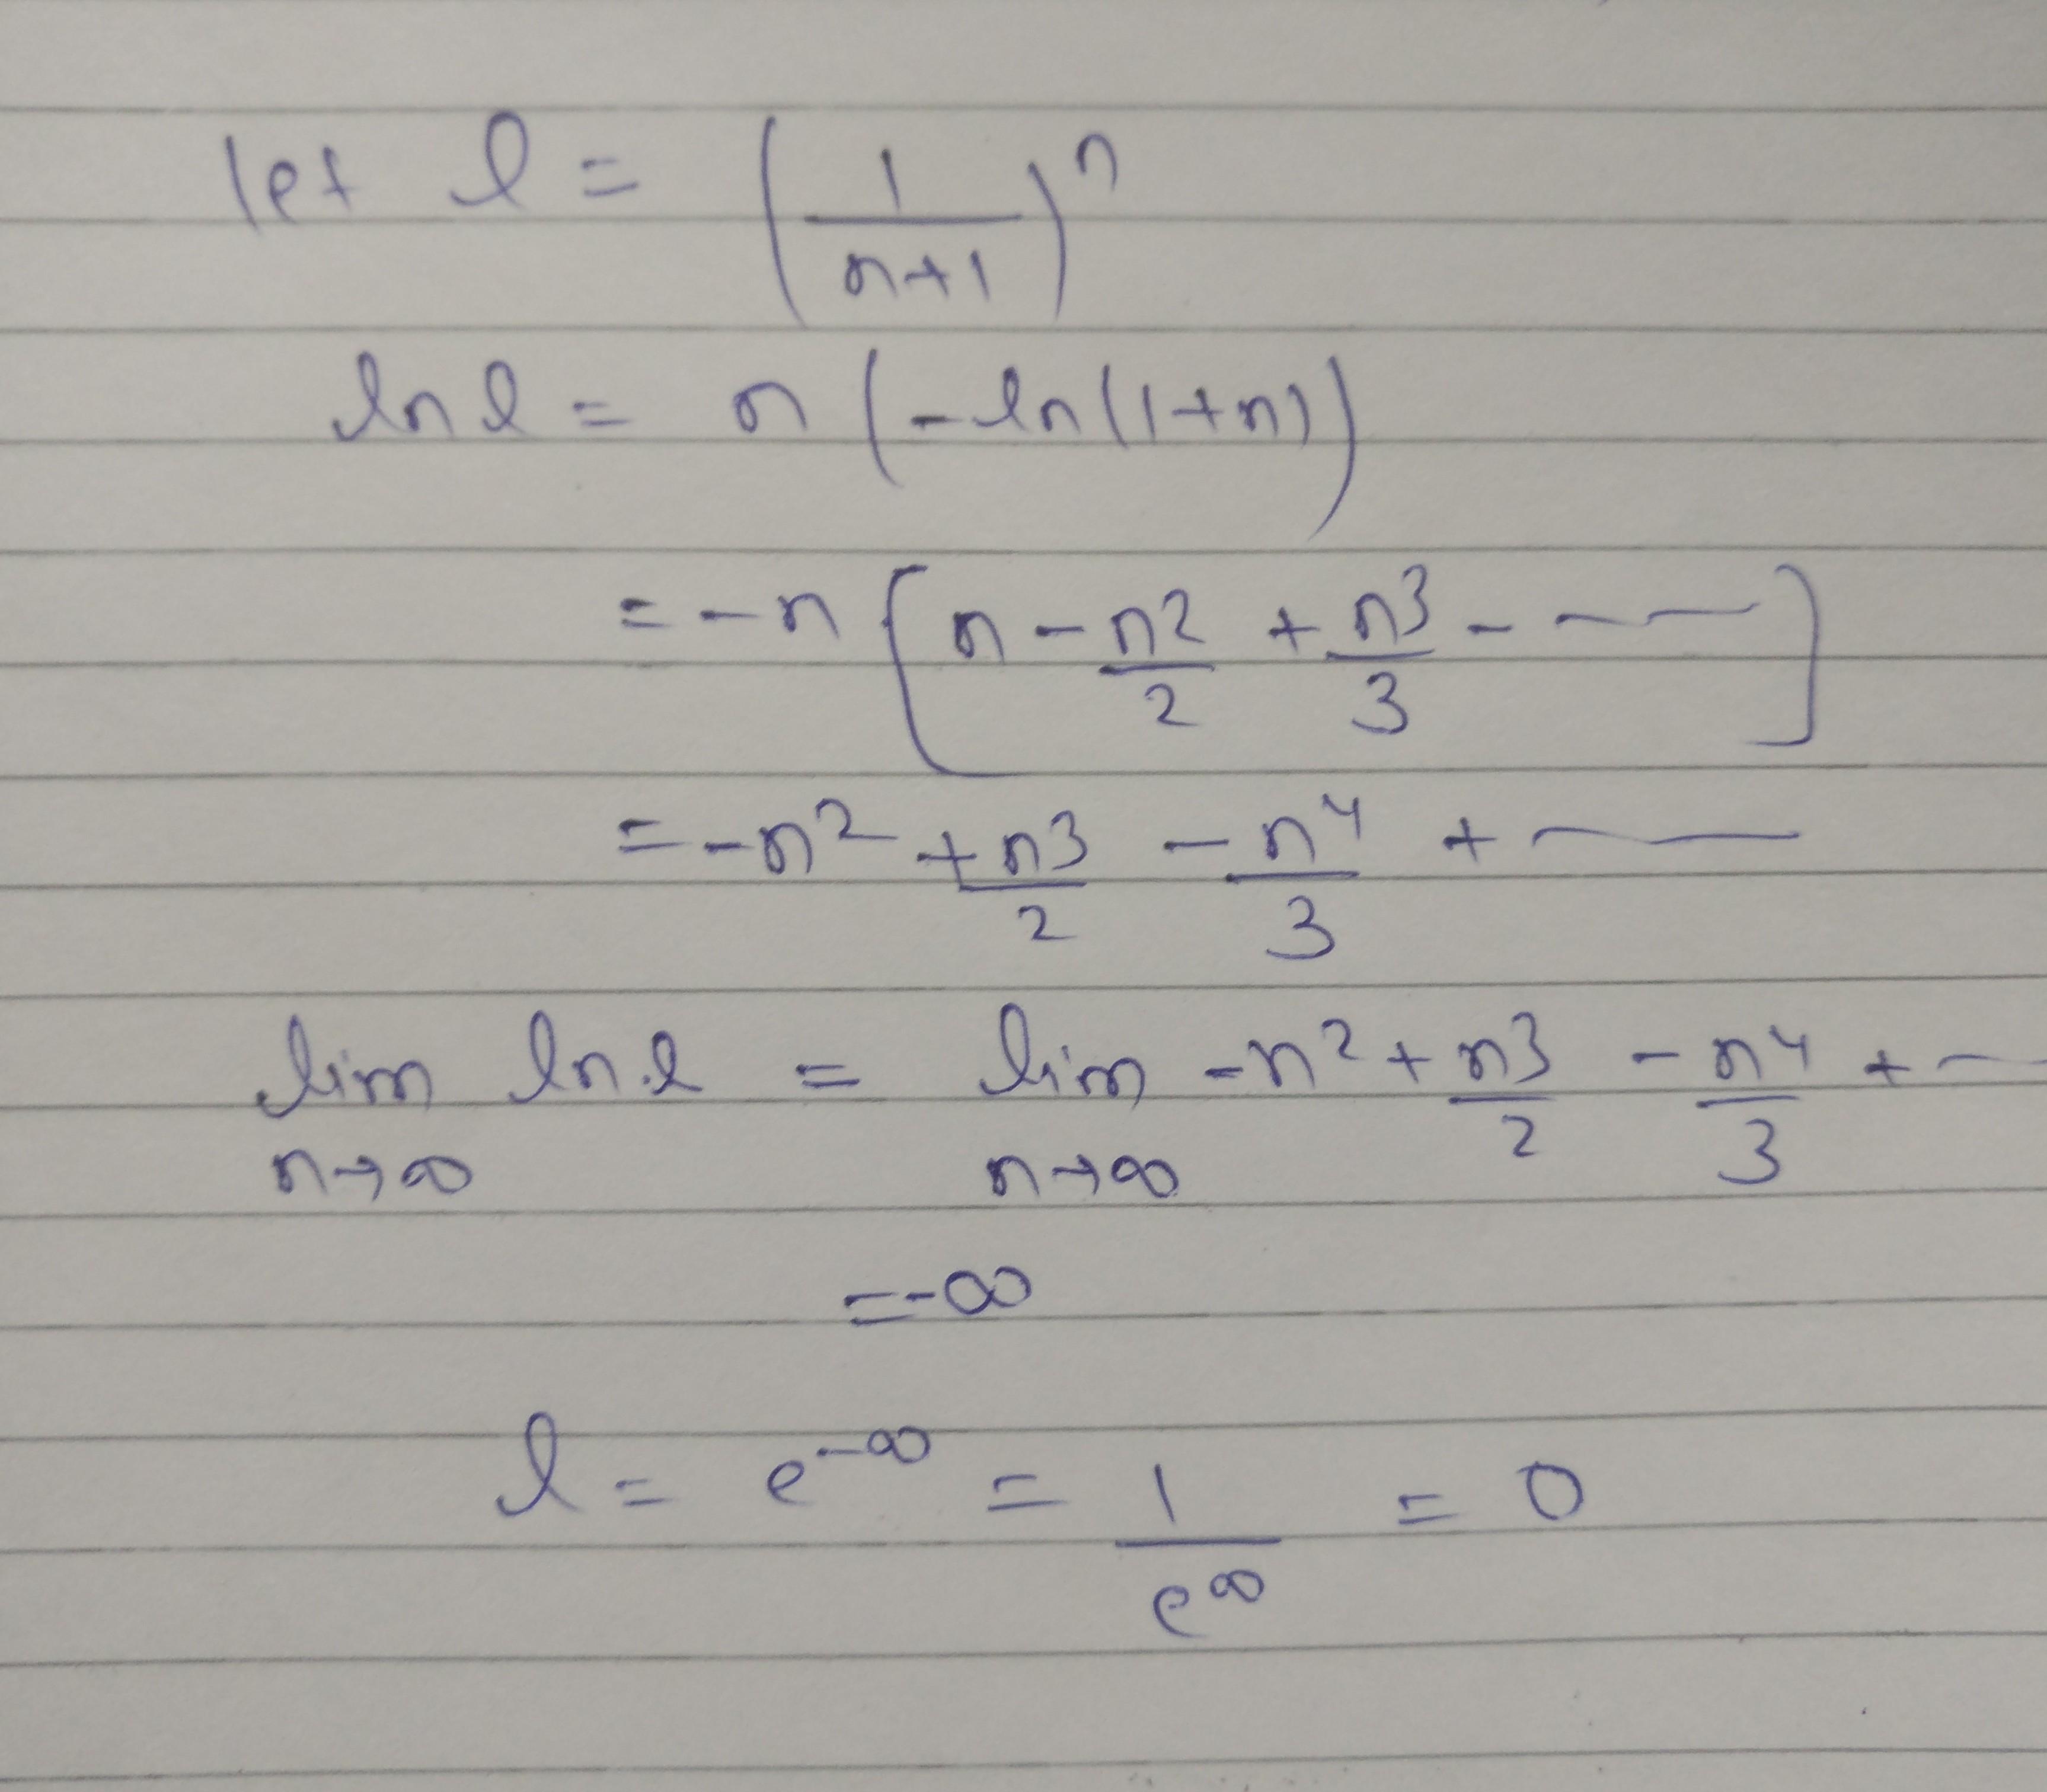 let l = (1/(n+1))^n
ln l = n(-ln(1+n))
= -n[n - n²/2 + n³/3 - ---]
= -n² + n³/2 - n⁴/3 + ---
lim n→∞ ln l = lim n→∞ -n² + n³/2 - n⁴/3 + --
= -∞
l = e^-∞ = 1/e^∞ = 0